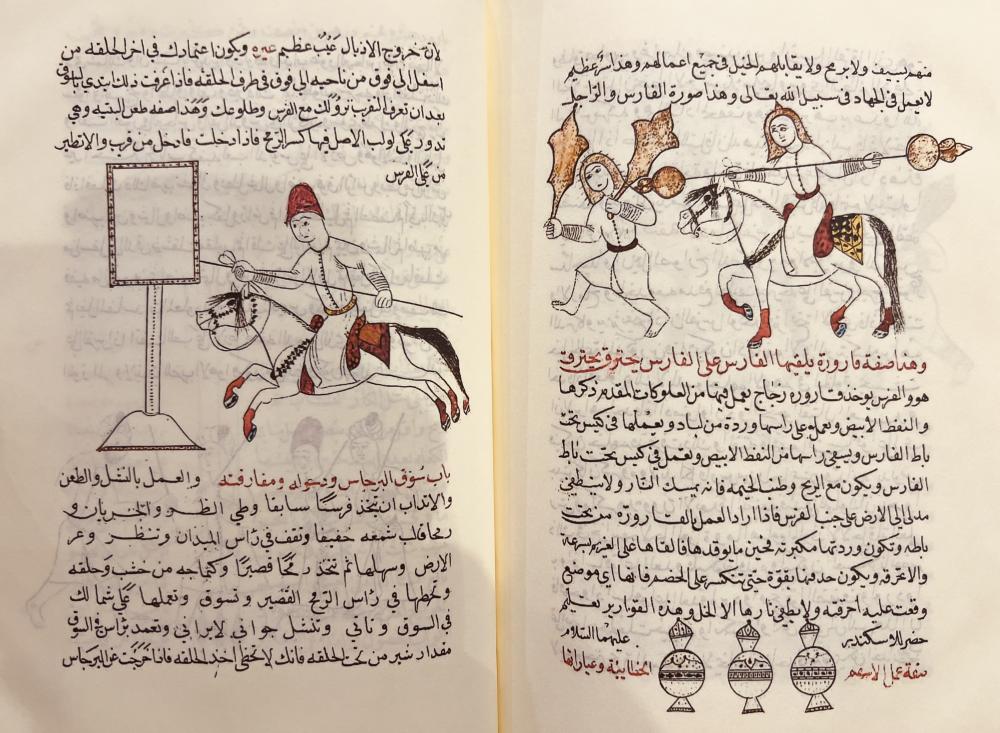 منهم بسيف ولا برمح ولا يقابلهم الخيل في جميع اعمالهم وهذا سر عظيم
لا يعمل في الجهاد في سبيل الله تعالى وهذا صورة الفارس والراجل
وهذا صفة قارورة يلقيها الفارس على الفارس يحترق يحترق
هو والفرس يوخذ قاروره زجاج يعمل فيها من العلوكات المقدم ذكرها
والنفط الابيض ويعمل على راسها وردة من لباد ويعملها في كيس تحت
باط الفارس ويسقى راسها من النفط الابيض ويعمل في كيس تحت باط
الفارس ويكون مع الريح وطب الختمه فانه يمسك النار ولا ينطفي
مدلى الى الارض على جنب الفرس فاذا اراد العمل بالقارورة من تحت
باطه وتكون وردتها مكبرته فحين ما يوقدها فالقاها على الغريم بسرعة
والا حرقه ويكون حدفها بقوة حتى تنكسر على الخصم فانها اي موضع
وقعت عليه احرقته ولا يطفي نارها الا الخل وهذه القوارير بتعليم
حضر للاسكندر عليهما السلام
صفة عمل الاسهم الخطاييه وعياراتها
لان خروج الاذيال عيب عظيم عيره ويكون اعتمادك في اخر الحلقه من
اسفل الى فوق من ناحيه الى فوق في طرف الحلقه فاذا عرفت ذلك ابتدي بالسوق
بعد ان تعرف القرب نزولك مع الفرس وطلوعك وهذا صفه طعن البتيه وهي
تدور على لولب الاصل فيها كسر الرمح فاذا دخلت فادخل من قرب والا تطير
من على الفرس
باب سوق البرجاس ودخوله ومفارقته والعمل بالنشل والطعن
والاتداب ان يتخذ فرسا سابقا وطي الظهر والجريان و
رمحا قالب شمعه خفيفا وتقف في راس الميدان وتنظر وعر
الارض وسهلها ثم تتخذ رمحا قصيرا وكتماجه من خشب وحلقه
وتحطها في راس الرمح القصير وتسوق وتعملها على شمالك
في السوق وتاتي وتنشل جواني لا براني وتعمد براس في السوق
مقدار شبر من تحت الحلقه فانك لا تخطي اخذ الحلقه فاذا خرجت عن البرجاس